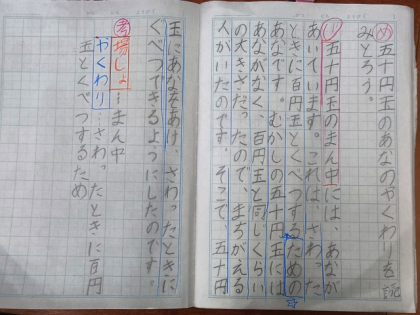 め 五十円玉のあなのやくわりを読
みとろう。
① 五十円玉のまん中には、あなが
あいています。これは、さわった
ときに百円玉とくべつするための
あなです。むかしの五十円玉には
あながなく、百円玉と同じくらい
の大きさだったので、まちがえる
人がいたのです。そこで、五十円
玉にあなをあけ、さわったときに
くべつできるようにしたのです。
考 場しょ…まん中
やくわり…さわったときに百円
玉とくべつするため